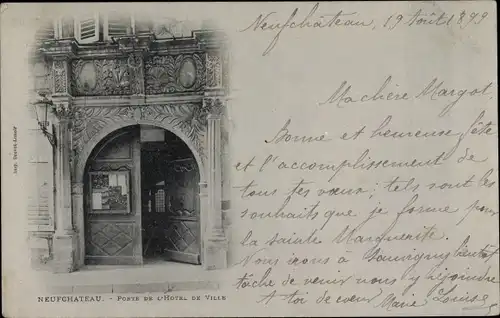 Neufchâteau, 19 Août 1899
Ma chère Margot
Bonne et heureuse fête
et l'accomplissement de
tous tes vœux; tels sont les
souhaits que je forme pour
la Sainte Marguerite.
Nous irons à Sauvigny bientôt
tâche de venir nous y rejoindre
A toi de cœur Marie Louise
NEUFCHATEAU. - PORTE DE L'HÔTEL DE VILLE